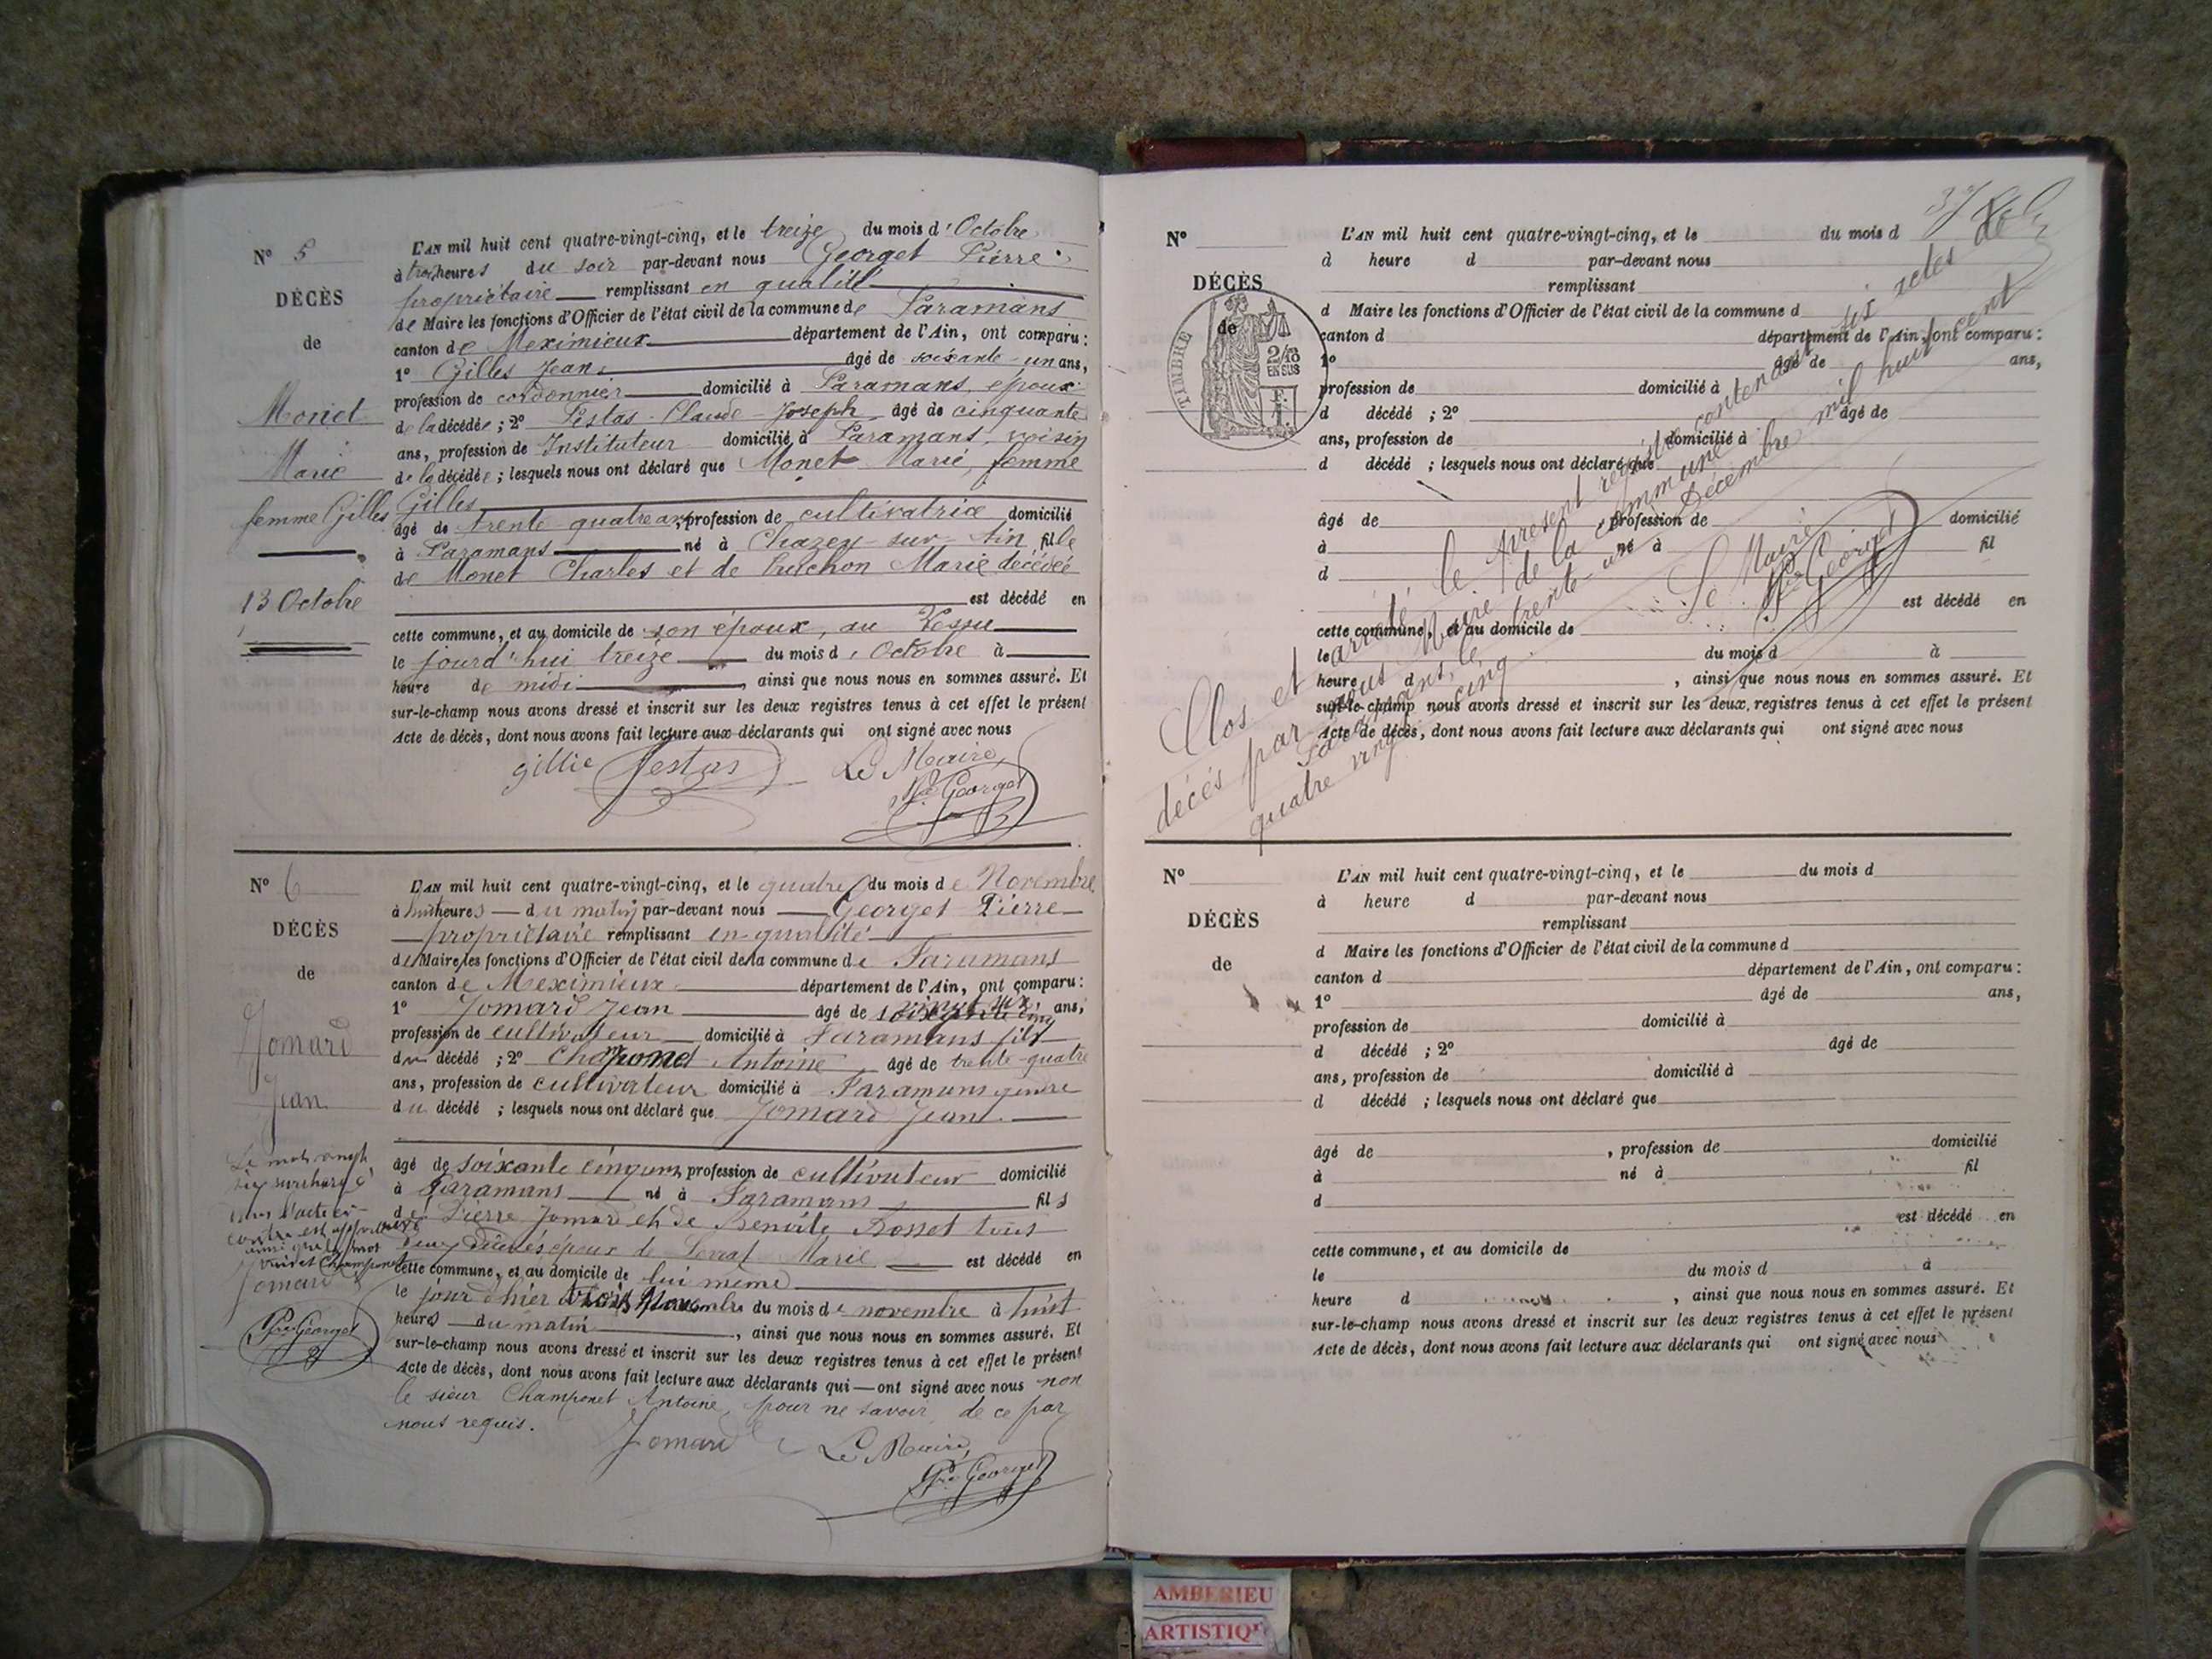 N° 5
DÉCÈS
de
Monet
Marie
femme Gilles
13 Octobre
L'AN mil huit cent quatre-vingt-cinq, et le treize du mois d'Octobre
à trois heures du soir par-devant nous Georget Pierre
propriétaire remplissant en qualité
de Maire les fonctions d'Officier de l'état civil de la commune de Faramans
canton de Meximieux département de l'Ain, ont comparu :
1° Gilles Jean âgé de soixante-un ans,
profession de cordonnier domicilié à Faramans, époux
de la décédée ; 2° Festas Claude Joseph âgé de cinquante
ans, profession de Instituteur domicilié à Faramans, voisin
de la décédée ; lesquels nous ont déclaré que Monet Marie, femme
Gilles
âgé de trente quatre ans, profession de cultivatrice domicilié
à Faramans né à Chazey-sur-Ain, fille
de Monet Charles et de Marie décédée
est décédé en
cette commune, et au domicile de son époux, au
le jourd'hui treize du mois d'Octobre à
heure de midi, ainsi que nous nous en sommes assuré. Et
sur-le-champ nous avons dressé et inscrit sur les deux registres tenus à cet effet le présent
Acte de décès, dont nous avons fait lecture aux déclarants qui ont signé avec nous
gillie Festas Le Maire,
Pre Georget
N° 6
DÉCÈS
de
Jomard
Jean
Le mot vingt
six surchargé
dans l'acte ci-
contre est approuvé
ainsi que le mot
Champonet
Jomard
Pre Georget
L'AN mil huit cent quatre-vingt-cinq, et le quatre du mois de Novembre
à huit heures du matin par-devant nous Georget Pierre
propriétaire remplissant en qualité
de Maire les fonctions d'Officier de l'état civil de la commune de Faramans
canton de Meximieux département de l'Ain, ont comparu :
1° Jomard Jean âgé de vingt six ans,
profession de cultivateur domicilié à Faramans fils
du décédé ; 2° Champonet Antoine âgé de trente-quatre
ans, profession de cultivateur domicilié à Faramans gendre
du décédé ; lesquels nous ont déclaré que Jomard Jean
âgé de soixante cinq ans, profession de cultivateur domicilié
à Faramans né à Faramans fils
de Pierre Jomard et de Benoite Rosset tous
deux décédés époux de Marie est décédé en
cette commune, et au domicile de lui même
le jour d'hier trois Novembre du mois de novembre à huit
heures du matin, ainsi que nous nous en sommes assuré. Et
sur-le-champ nous avons dressé et inscrit sur les deux registres tenus à cet effet le présent
Acte de décès, dont nous avons fait lecture aux déclarants qui ont signé avec nous non
le sieur Champonet Antoine pour ne savoir de ce par
nous requis.
Jomard Le Maire,
Pre Georget
37
N°
DÉCÈS
de
TIMBRE
2/10
EN SUS
L'AN mil huit cent quatre-vingt-cinq, et le du mois d
à heure d par-devant nous
remplissant
d Maire les fonctions d'Officier de l'état civil de la commune d
canton d département de l'Ain, ont comparu :
1° âgé de ans,
profession de domicilié à
d décédé ; 2° âgé de
ans, profession de domicilié à
d décédé ; lesquels nous ont déclaré que
âgé de , profession de domicilié
à né à fil
d
est décédé en
cette commune, et au domicile de
le du mois d à
heure d , ainsi que nous nous en sommes assuré. Et
sur-le-champ nous avons dressé et inscrit sur les deux registres tenus à cet effet le présent
Acte de décès, dont nous avons fait lecture aux déclarants qui ont signé avec nous
Clos et arrêté le présent registre contenant six actes de
décès par nous Maire de la commune
Faramans, le trente-un Décembre mil huit cent
quatre vingt cinq
Le Maire
Pre Georget
N°
DÉCÈS
de
L'AN mil huit cent quatre-vingt-cinq, et le du mois d
à heure d par-devant nous
remplissant
d Maire les fonctions d'Officier de l'état civil de la commune d
canton d département de l'Ain, ont comparu :
1° âgé de ans,
profession de domicilié à
d décédé ; 2° âgé de
ans, profession de domicilié à
d décédé ; lesquels nous ont déclaré que
âgé de , profession de domicilié
à né à fil
d
est décédé en
cette commune, et au domicile de
le du mois d à
heure d , ainsi que nous nous en sommes assuré. Et
sur-le-champ nous avons dressé et inscrit sur les deux registres tenus à cet effet le présent
Acte de décès, dont nous avons fait lecture aux déclarants qui ont signé avec nous
AMBERIEU
ARTISTIQ